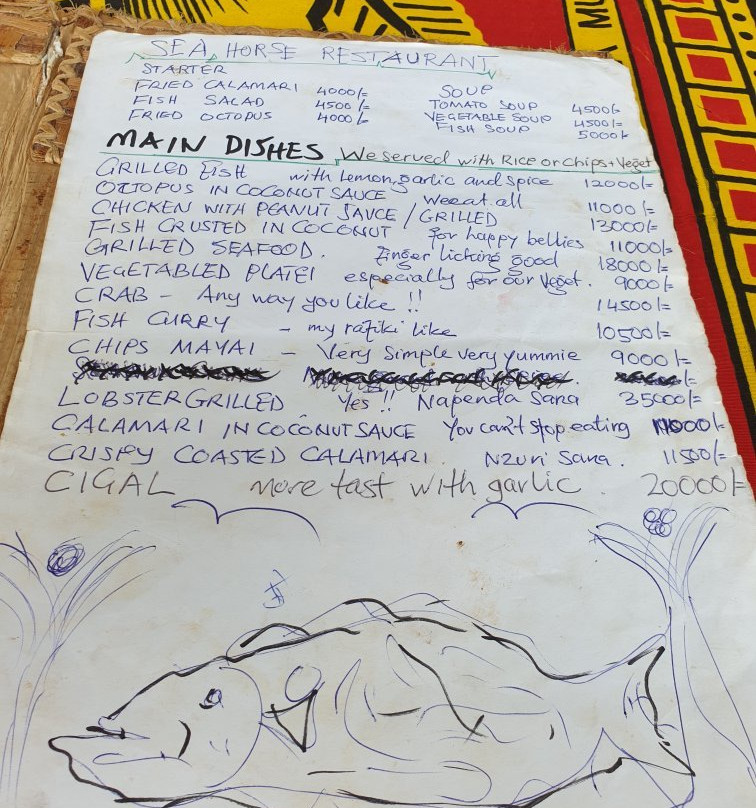 SEA HORSE RESTAURANT
STARTER
FRIED CALAMARI 4000/=
FISH SALAD 4500/=
FRIED OCTOPUS 4000/=
SOUP
TOMATO SOUP 4500/=
VEGETABLE SOUP 4500/=
FISH SOUP 5000/=
MAIN DISHES We served with Rice or chips + Veget
GRILLED FISH with Lemon, garlic and spice 12000/=
OCTOPUS IN COCONUT SAUCE Weeat all 11000/=
CHICKEN WITH PEANUT SAUCE / GRILLED 13000/=
FISH CRUSTED IN COCONUT for happy bellies 11000/=
GRILLED SEAFOOD. Finger licking good 18000/=
VEGETABLED PLATEI especially for our Veget. 9000/=
CRAB - Any way you like !! 14500/=
FISH CURRY - my rafiki like 10500/=
CHIPS MAYAI - Very simple very yummie 9000/=
LOBSTER GRILLED Yes !! Napenda Sana 35000/=
CALAMARI IN COCONUT SAUCE You can't stop eating 11000/=
CRISPY COASTED CALAMARI. NZURI Sana. 11500/=
CIGAL more tast with garlic. 20000/=
MU